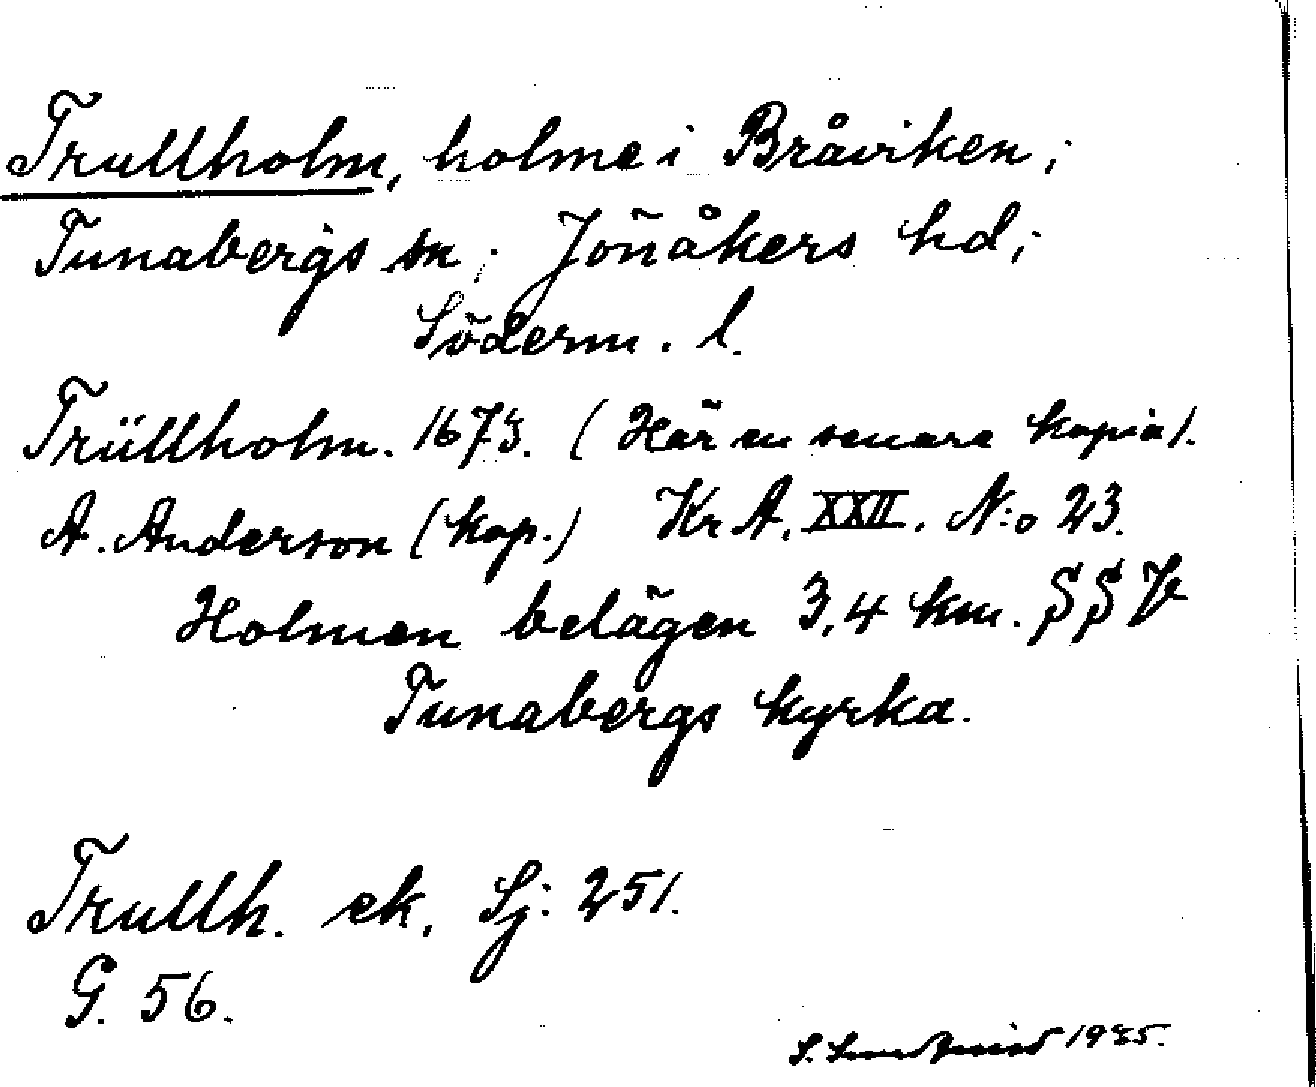 Trullholm, holme i Bråviken;
Tunabergs sn; Jönåkers hd;
Söderm. l.
Trüllholm. 1673. (Här en senare kopia).
A. Anderson (kop.) Kr A. XXII. N:o 23.
Holmen belägen 3,4 km. SSV
Tunabergs kyrka.
Trullh. ek. Sj: 251.
G. 56.
S. 1935.